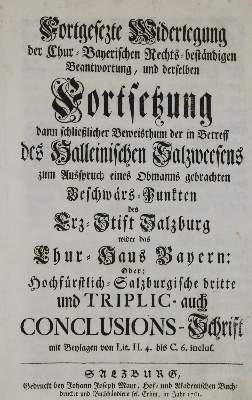 Fortgesezte Widerlegung
der Chur-Bayerischen Rechts-beständigen
Beantwortung, und derselben
Fortsetzung
dann schließlicher Beweisthum der in Betreff
des Halleinischen Salzweesens
zum Ausspruch eines Obmanns gebrachten
Beschwärs-Punkten
des
Erz-Stift Salzburg
wider das
Chur-Haus Bayern:
Oder:
Hochfürstlich-Salzburgische dritte
und TRIPLIC- auch
CONCLUSIONS-Schrift
mit Beylagen von Lit. H. 4. bis C. 6. inclus.
SALZBURG,
Gedruckt bey Johann Joseph Mayr, Hof- und Akademischen Buch-
drucker und Buchhändlers sel. Erbin, im Jahr 1761.